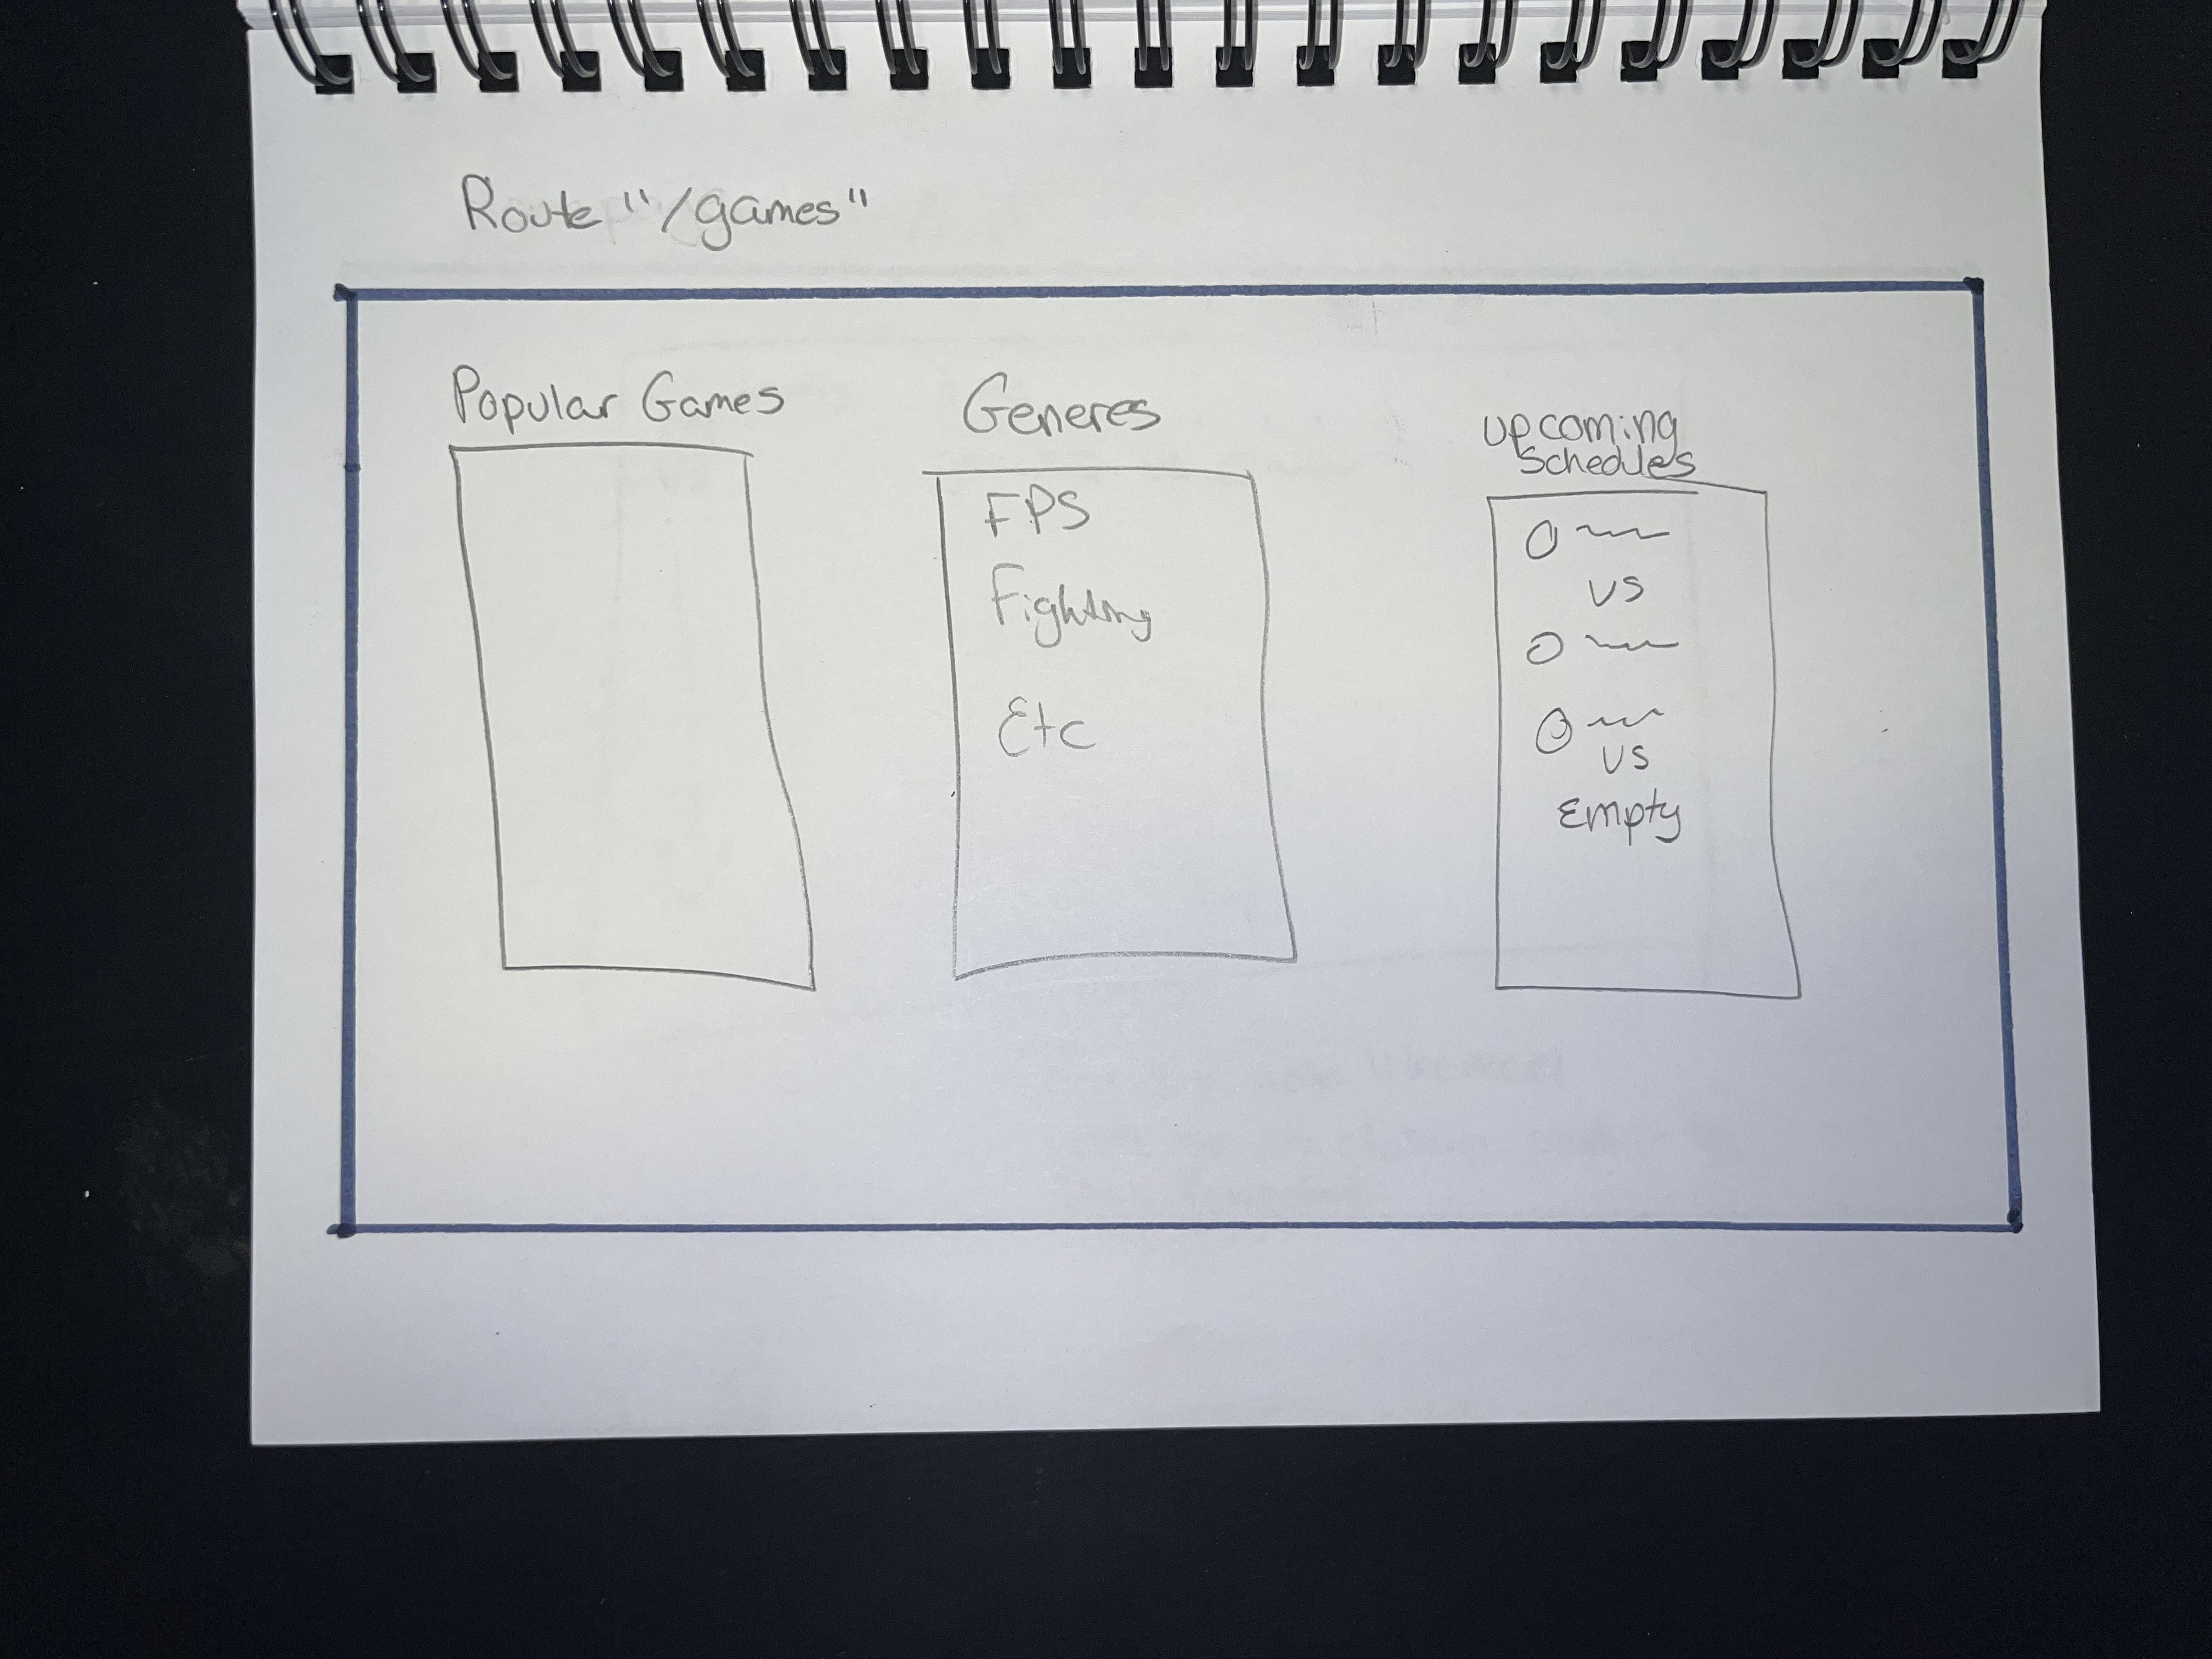 Route "/games"
Popular Games
Generes
FPS
Fighting
Etc
upcoming
Schedules
vs
vs
Empty